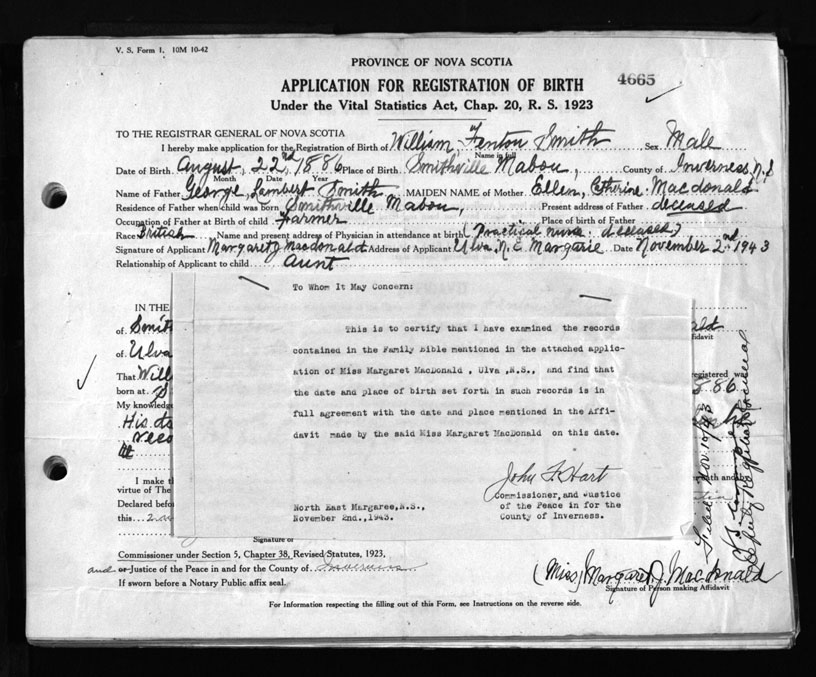 V. S. Form 1. 10M 10-42
PROVINCE OF NOVA SCOTIA
APPLICATION FOR REGISTRATION OF BIRTH
4665
Under the Vital Statistics Act, Chap. 20, R. S. 1923
TO THE REGISTRAR GENERAL OF NOVA SCOTIA
I hereby make application for the Registration of Birth of William Fenton Smith Sex Male
Name in full
Date of Birth August, 22nd 1886 Place of Birth Smithville Mabou, County of Inverness, N.S
Month Date Year
Name of Father George, Lambert Smith, MAIDEN NAME of Mother Ellen, Catherine Macdonald
Residence of Father when child was born Smithville Mabou, Present address of Father deceased
Occupation of Father at Birth of child Farmer Place of birth of Father
Race British Name and present address of Physician in attendance at birth (Practical nurse. deceased)
Signature of Applicant Margaret J Macdonald Address of Applicant Ulva, N. E. Margarie Date November 2nd 1943
Relationship of Applicant to child Aunt
To Whom It May Concern:
This is to certify that I have examined the records
contained in the Family Bible mentioned in the attached appli-
ation of Miss Margaret MacDonald , Ulva ,N.S., and find that
the date and place of birth set forth in such records is in
full agreement with the date and place mentioned in the Affi-
davit made by the said Miss Margaret MacDonald on this date.
John F. Hart
Commissioner, and Justice
of the Peace in for the
County of Inverness.
North East Margaree,N.S.,
November 2nd.,1943.
IN THE
of Smith
of Ulva
That Will
born at S
My knowledg
His da
reco
I make t
virtue of The
Declared before
this
ald
fidavit
egistered was
886
Filed Nov 10/43
Signature of
Commissioner under Section 5, Chapter 38, Revised Statutes, 1923,
and or Justice of the Peace in and for the County of Inverness
If sworn before a Notary Public affix seal.
(Miss) Margaret J. Macdonald
Signature of Person making Affidavit
For Information respecting the filling out of this Form, see Instructions on the reverse side.